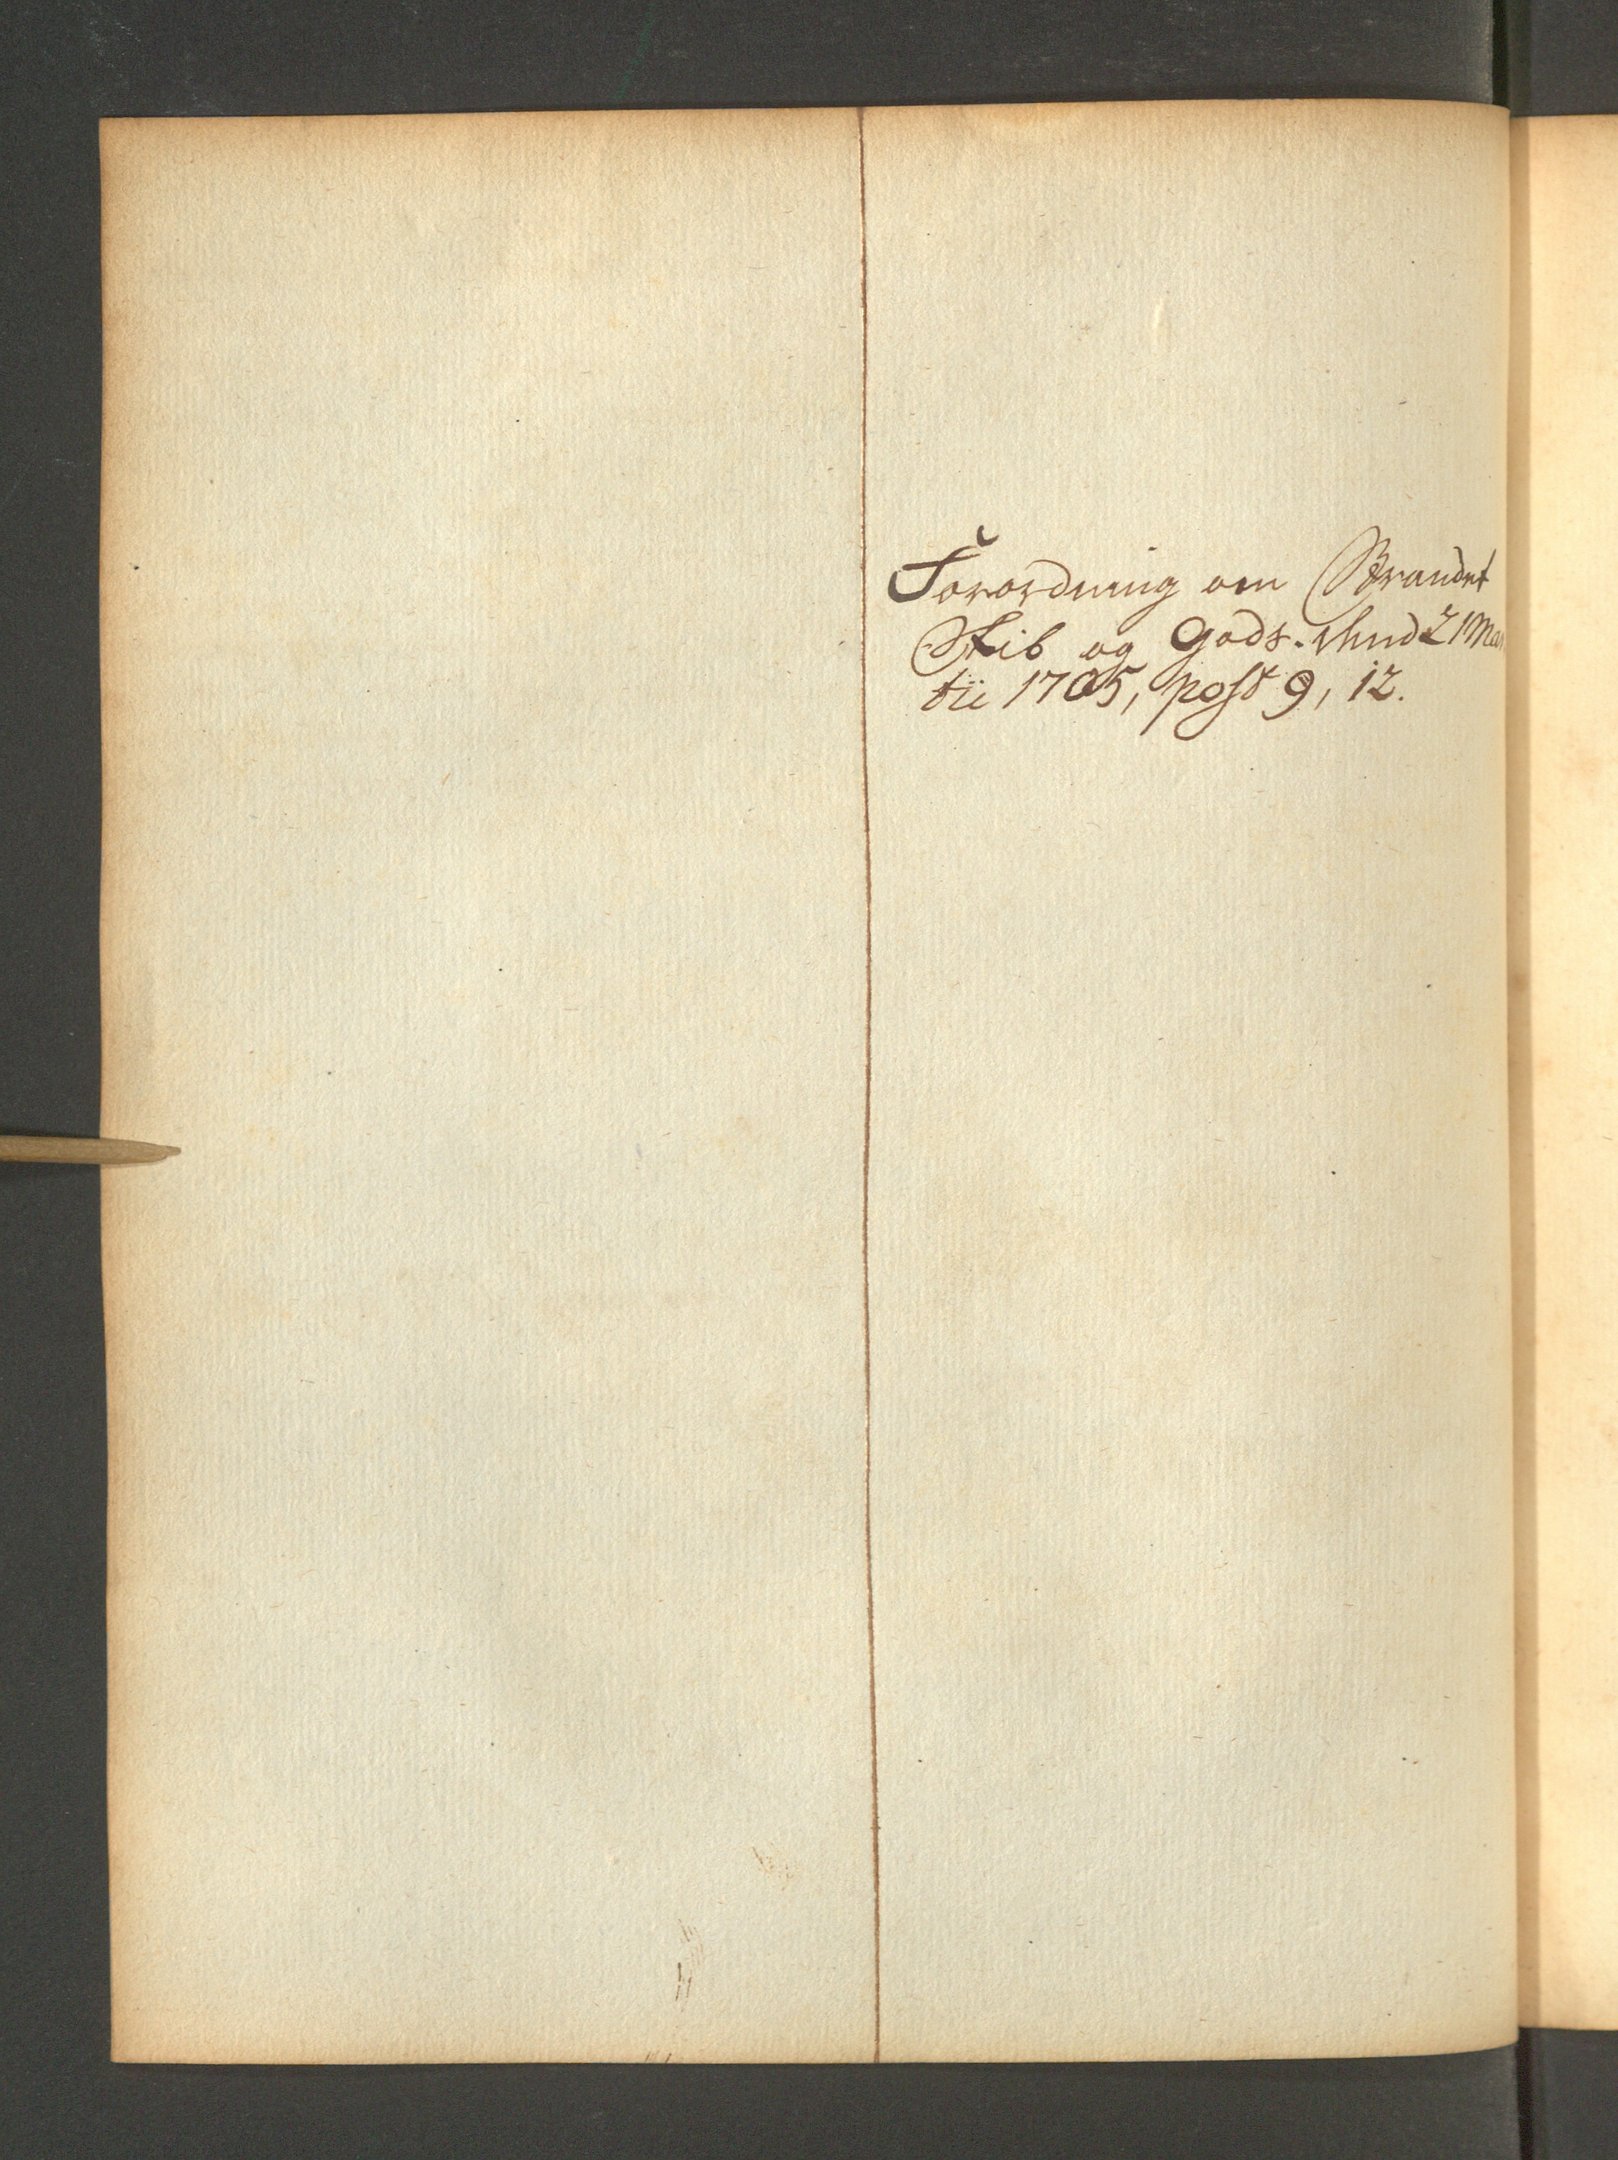 Forordning om Strandet
Skib og Gods. 21 Mar
tii 1705, post 9, 12.